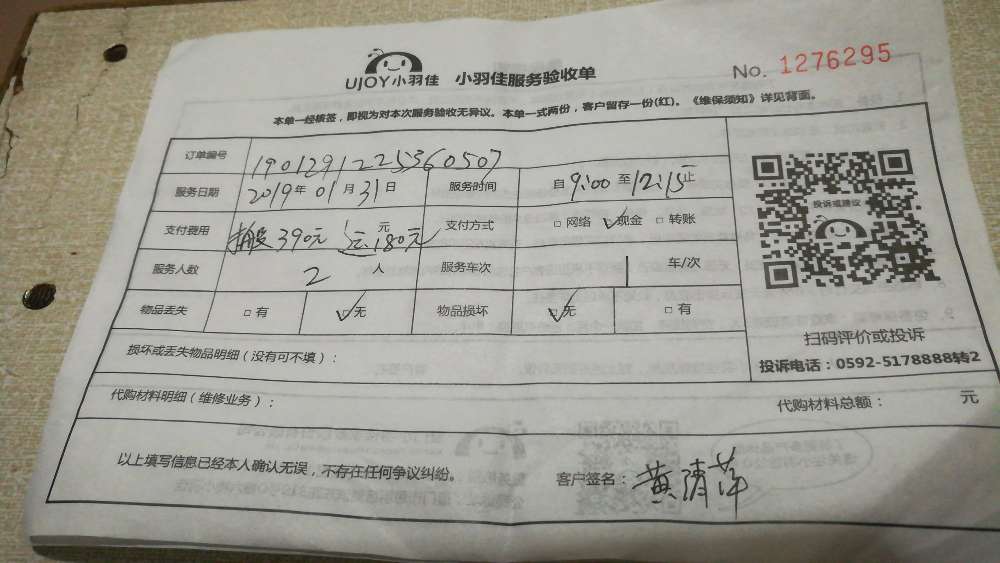 UJOY小羽佳 小羽佳服务验收单 No. 1276295
本单一经核签，即视为对本次服务验收无异议。本单一式两份，客户留存一份(红)。《维保须知》详见背面。
订单编号 1901291225360507
服务日期 2019年01月31日 服务时间 自9:00至12:15止
支付费用 搬 390元 180元 元 支付方式 □网络 ☑现金 □转账
投诉或建议
服务人数 2人 服务车次 1 车/次
物品丢失 □有 ☑无 物品损坏 ☑无 □有
扫码评价或投诉
投诉电话：0592-5178888转2
损坏或丢失物品明细（没有可不填）：
代购材料明细（维修业务）： 代购材料总额： 元
以上填写信息已经本人确认无误，不存在任何争议纠纷。 客户签名：黄清萍